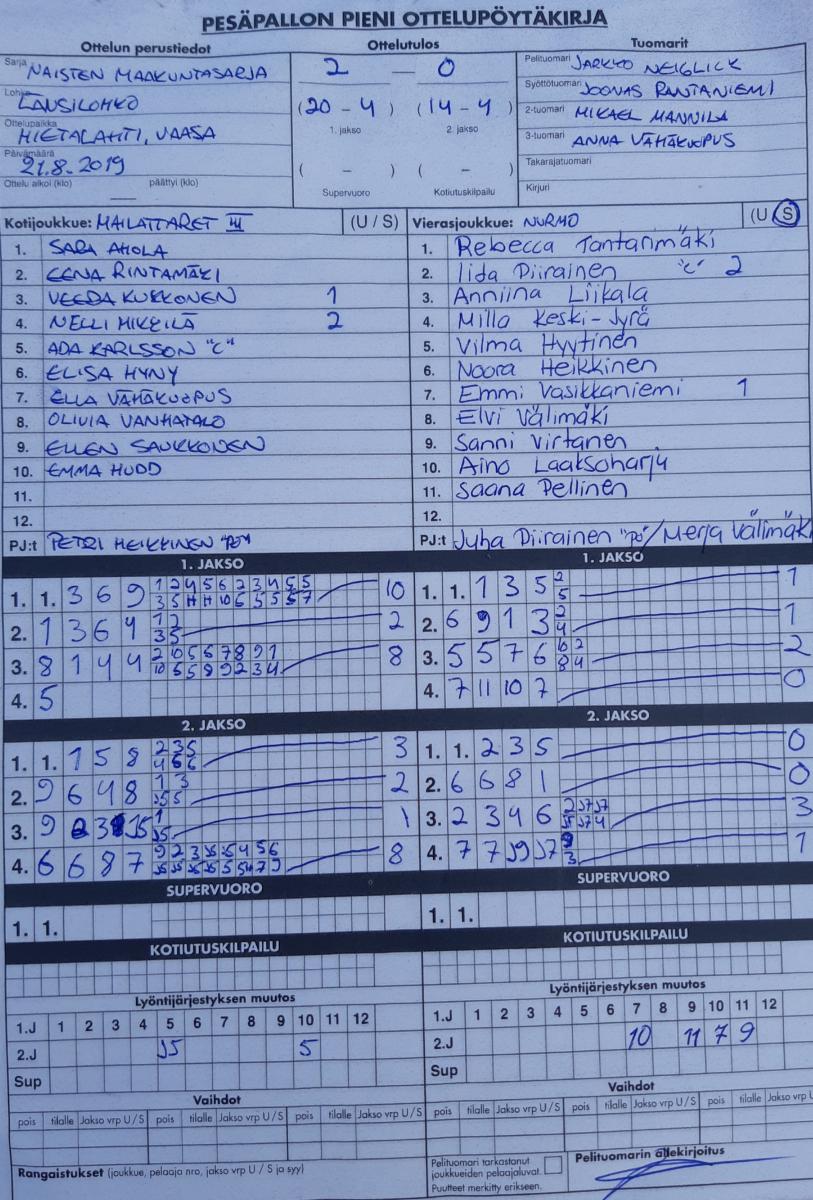 PESÄPALLON PIENI OTTELUPÖYTÄKIRJA
Ottelun perustiedot
Ottelutulos
Tuomarit
Sarja NAISTEN MAAKUNTASARJA
Lohko LÄNSILOHKO
Ottelupaikka HIETALAHTI, VAASA
Päivämäärä 21.8.2019
Ottelu alkoi (klo) — päättyi (klo)
2 — 0
(20 - 4) (14 - 4)
1. jakso 2. jakso
( - ) ( - )
Supervuoro Kotiutuskilpailu
Pelituomari JARKKO NEIGLICK
Syöttötuomari JOONAS RANTANIEMI
2-tuomari MIKAEL MANNILA
3-tuomari ANNA VÄHÄKUOPUS
Takarajatuomari
Kirjuri
Kotijoukkue: MAILATTARET III (U / S)
1. SARA AHOLA
2. EENA RINTAMÄKI
3. VEERA KUKKONEN 1
4. NELLI MIKKILÄ 2
5. ADA KARLSSON "C"
6. ELISA HYNY
7. ELLA VÄHÄKUOPUS
8. OLIVIA VANHATALO
9. ELLEN SAUKKONEN
10. EMMA HUDD
11.
12.
PJ:t PETRI HEIKKINEN "PJ"
Vierasjoukkue: NURMO (U / S)
1. Rebecca Tantarimäki
2. Iida Piirainen "C" 2
3. Anniina Liikala
4. Milla Keski-Jyrä
5. Vilma Hyytinen
6. Noora Heikkinen
7. Emmi Vasikkaniemi 1
8. Elvi Välimäki
9. Sanni Virtanen
10. Aino Laaksoharju
11. Saana Pellinen
12.
PJ:t Juha Piirainen "PJ" / Merja Välimäki
1. JAKSO
1. 1. 3 6 9 10
2. 1 3 6 4 2
3. 8 1 4 4 8
4. 5
1. JAKSO
1. 1. 1 3 5 2 5 1
2. 6 9 1 3 2 4 1
3. 5 5 7 6 10 2 8 4 2
4. 7 11 10 7 0
2. JAKSO
1. 1. 1 5 8 3
2. 9 6 4 8 2
3. 9 2 3 J5 1
4. 6 6 8 7 8
2. JAKSO
1. 1. 2 3 5 0
2. 6 6 8 1 0
3. 2 3 4 6 3
4. 7 7 J9 J7 1
SUPERVUORO
1. 1.
SUPERVUORO
1. 1.
KOTIUTUSKILPAILU
KOTIUTUSKILPAILU
Lyöntijärjestyksen muutos
1.J 1 2 3 4 5 6 7 8 9 10 11 12
2.J J5 5
Sup
Lyöntijärjestyksen muutos
1.J 1 2 3 4 5 6 7 8 9 10 11 12
2.J 10 11 7 9
Sup
Vaihdot
pois tilalle Jakso vrp U / S pois tilalle Jakso vrp U / S pois tilalle Jakso vrp U / S
Vaihdot
pois tilalle Jakso vrp U / S pois tilalle Jakso vrp U / S pois tilalle Jakso vrp
Rangaistukset (joukkue, pelaaja nro, jakso vrp U / S ja syy)
Pelituomari tarkastanut
joukkueiden pelaajaluvat.
Puutteet merkitty erikseen.
Pelituomarin allekirjoitus